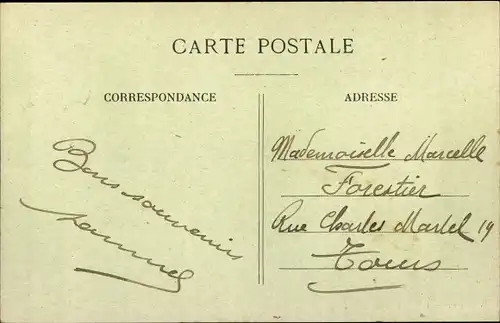 CARTE POSTALE
CORRESPONDANCE
ADRESSE
Bons souvenirs
Mademoiselle Marcelle
Forestier
Rue Charles Martel 19
Tours